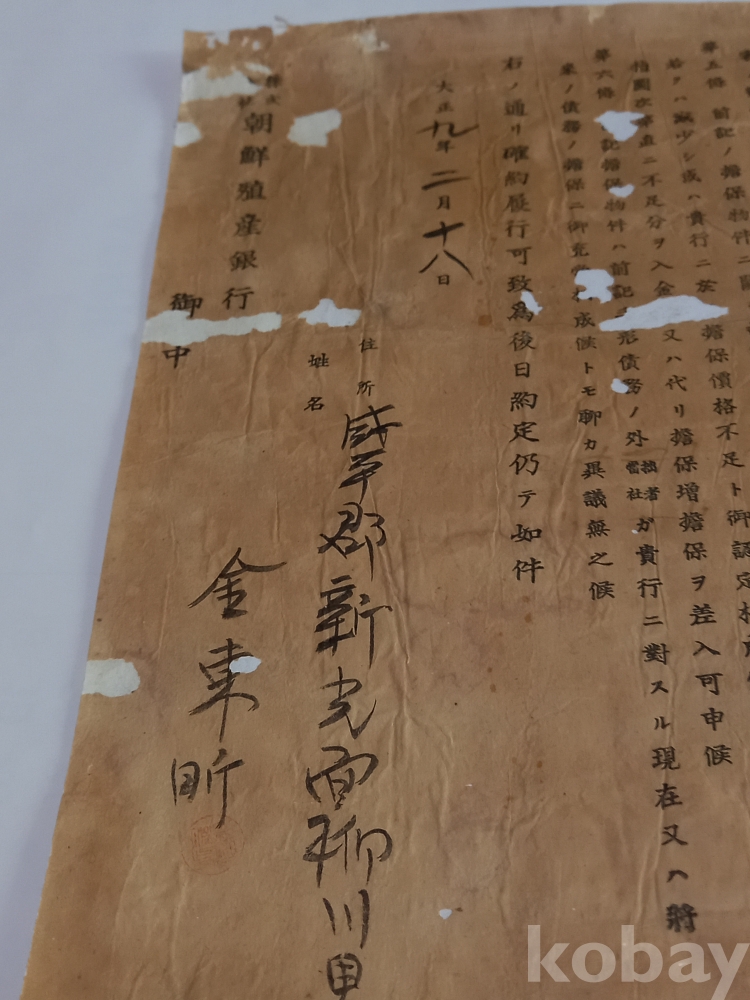 第五條 前記ノ擔保物件ニ
若クハ減少シ或ハ貴行ニ於 擔保價格不足ト御認定
不足分ヲ入金 又ハ代リ擔保増擔保ヲ差入可申候
第六條 記擔保物件ハ前記 形債務ノ外 拙者 當社 カ貴行ニ對スル現在又ハ將
來ノ債務ノ擔保ニ御充 成候トモ聊カ異議無之候
右ノ通リ確約履行可致爲後日約定仍テ如件
大正九年二月十八日
住所 咸平郡新光面柳川里
姓名 金東昕
朝鮮殖産銀行
御中
kobay